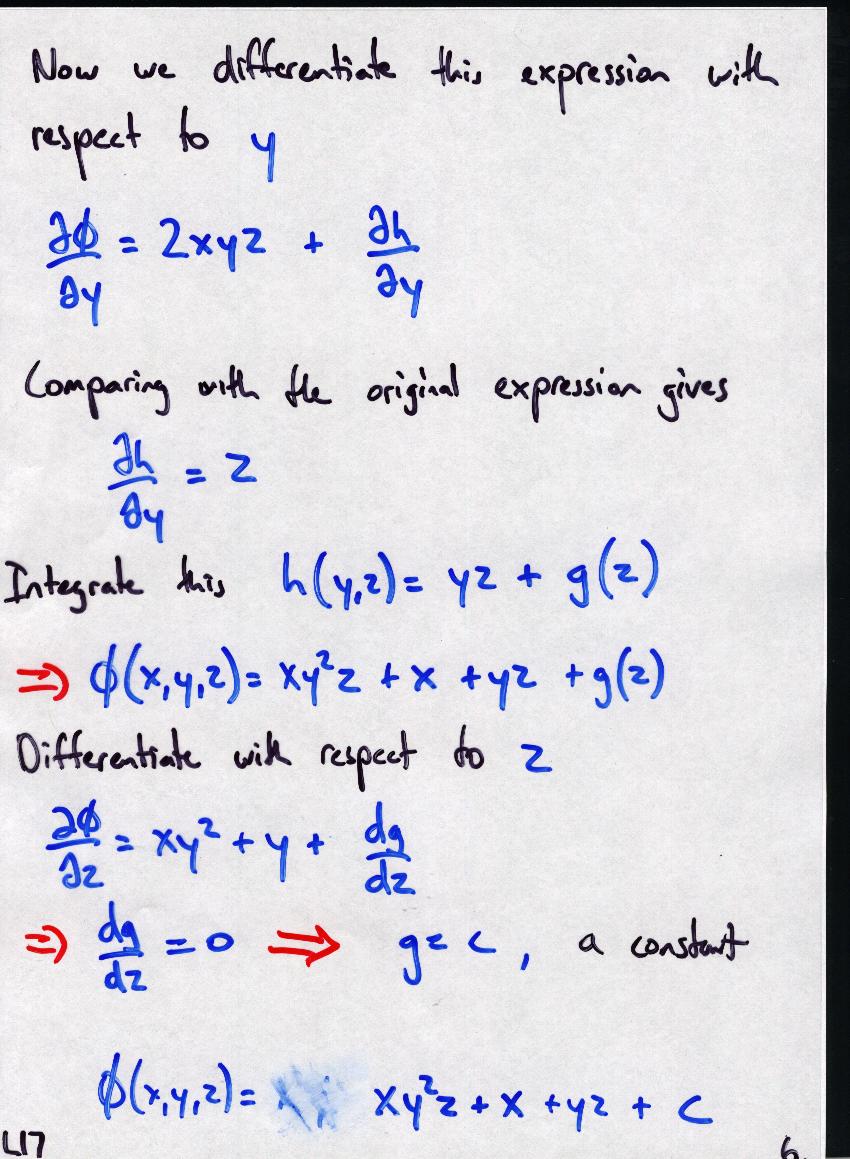 Now we differentiate this expression with
respect to y
∂ϕ/∂y = 2xyz + ∂h/∂y
Comparing with the original expression gives
∂h/∂y = z
Integrate this h(y,z) = yz + g(z)
⇒ ϕ(x,y,z) = xy²z + x + yz + g(z)
Differentiate with respect to z
∂ϕ/∂z = xy² + y + dg/dz
⇒ dg/dz = 0 ⇒ g = c, a constant
ϕ(x,y,z) = xy²z + x + yz + c
L17 6.